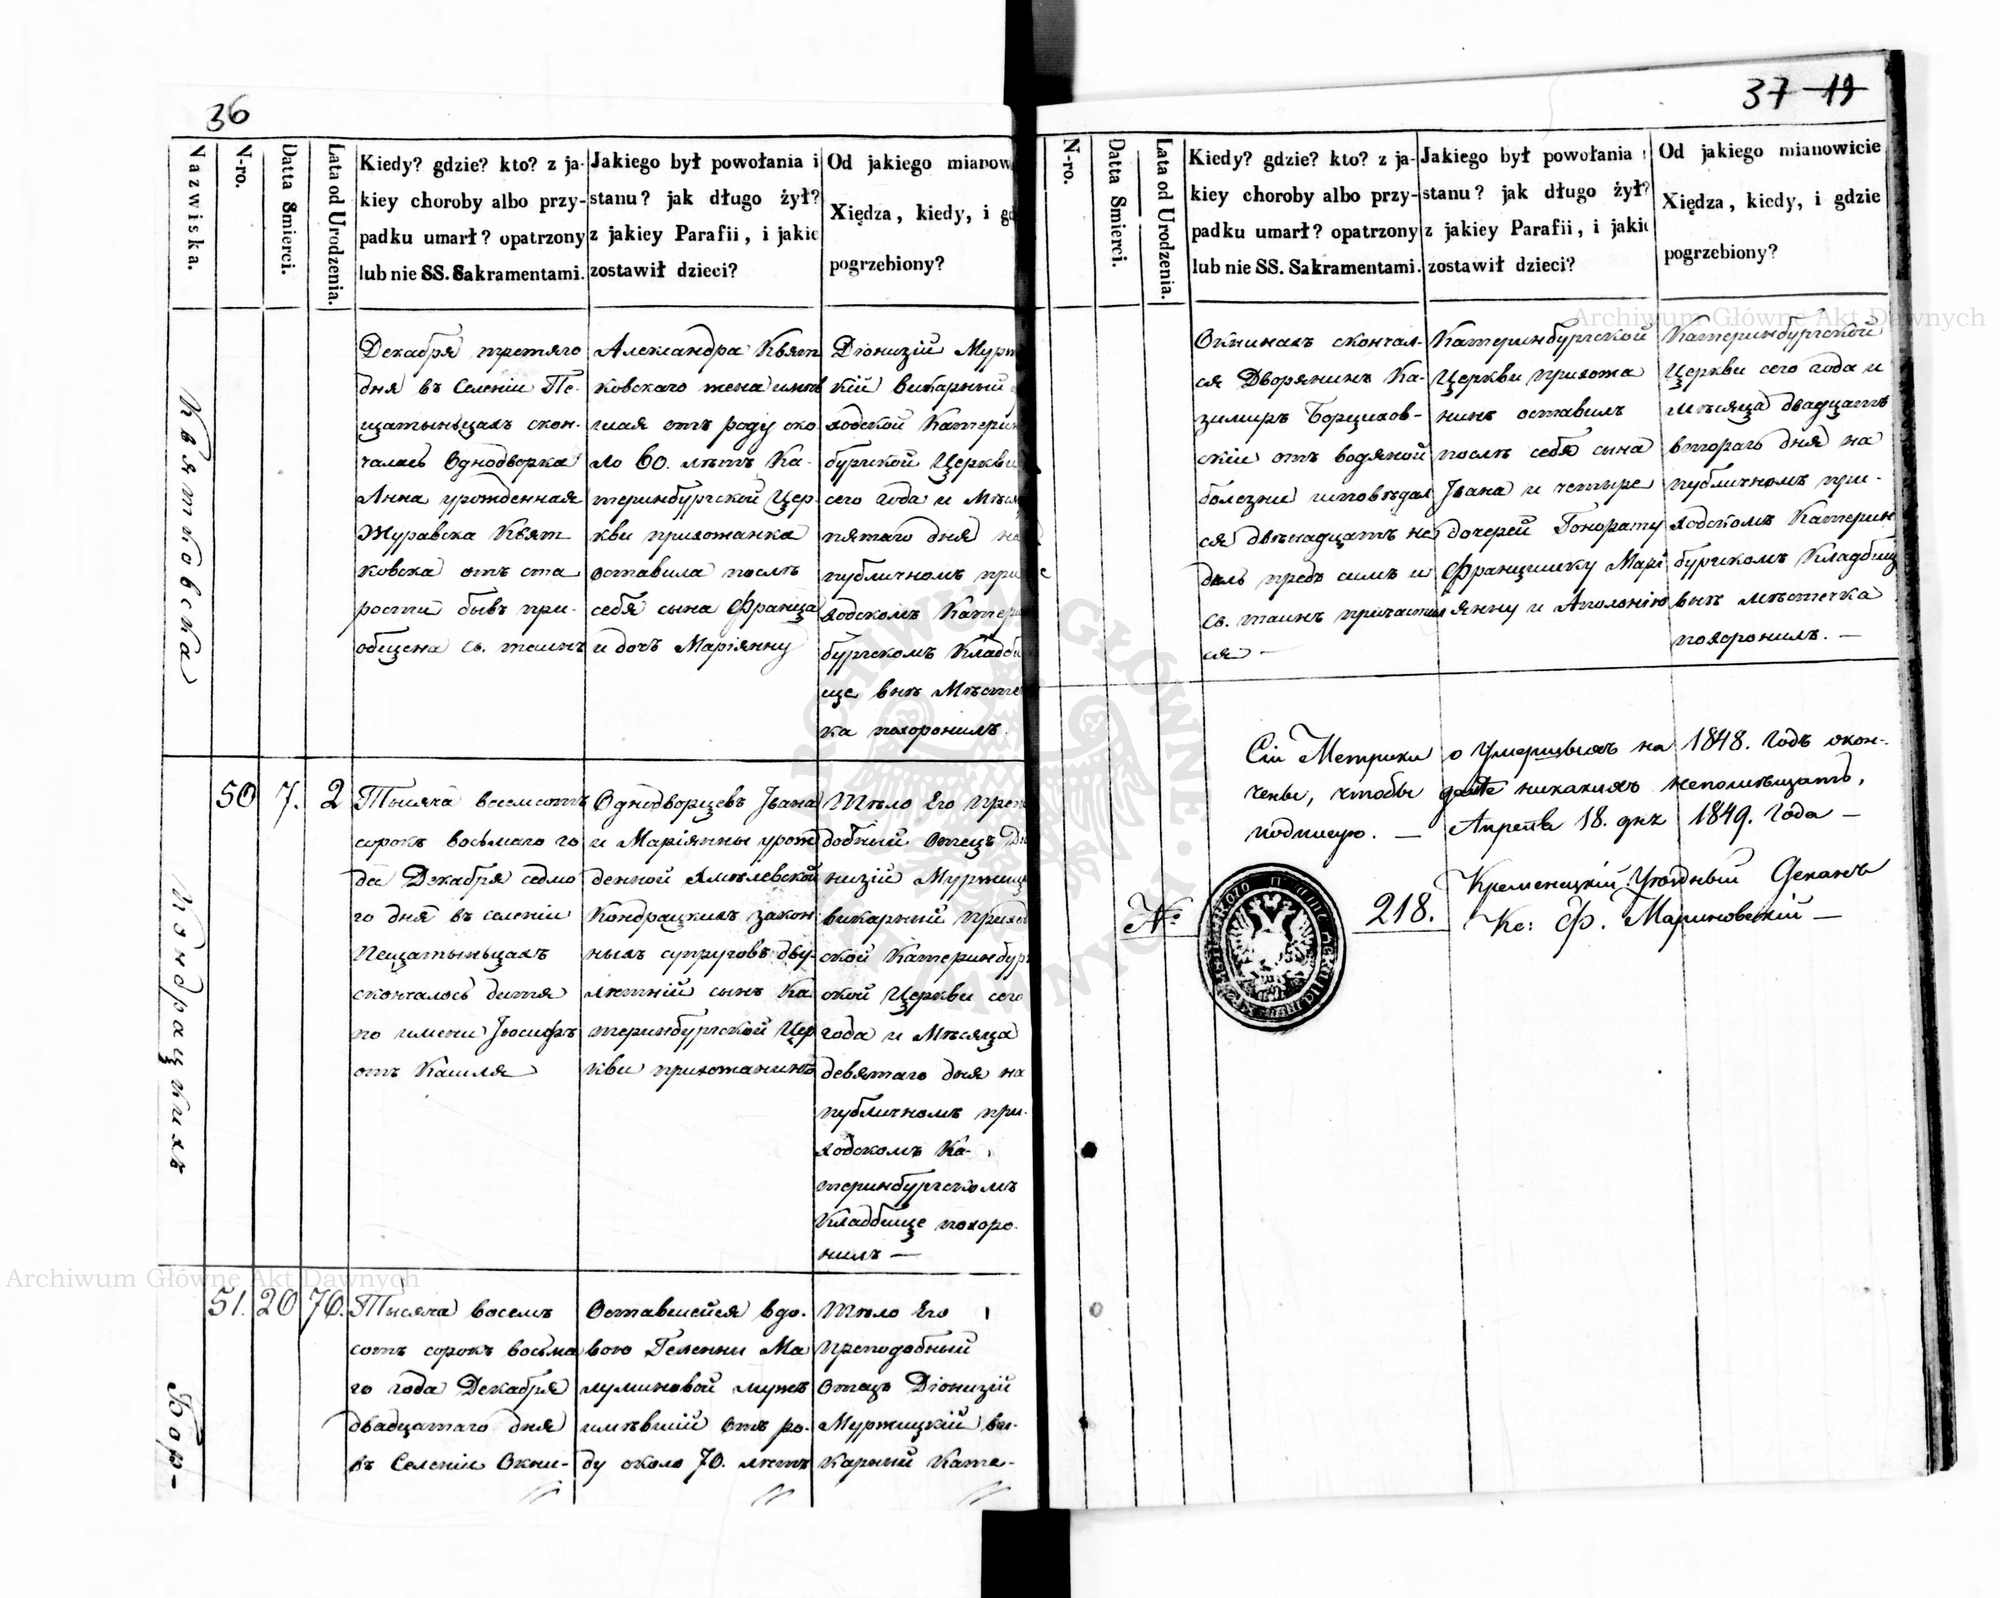 36
Nazwiska.
N-ro.
Datta Smierci.
Lata od Urodzenia.
Kiedy? gdzie? kto? z ja-
kiey choroby albo przy-
padku umarł? opatrzony
lub nie SS. Sakramentami.
Jakiego był powołania i
stanu? jak długo żył?
z jakiey Parafii, i jakie
zostawił dzieci?
Od jakiego mianow
Xiędza, kiedy, i gd
pogrzebiony?
Квятковска
Декабря третяго
дня въ Селеніи Пе-
щатыньцахъ скон-
чалась Однодворка
Анна урожденная
Журавска Квят
ковска отъ ста
рости бывъ при-
общена св. таинъ
Александра Квят
ковскаго жена имѣв
шая отъ роду око
ло 60. лѣтъ Ка-
теринбургской Цер-
кви прихожанка
оставила послѣ
себя сына Франца
и дочь Маріянну
Діонизій Мурж
кій викарный
ходской Катерин
бургской Церкви
сего года и Мѣся
пятаго дня на
публичномъ при
ходскомъ Катерин
бургскомъ Кладби
ще внѣ Мѣсте
ка похоронилъ.
Кондрацкихъ
50
7.
2
Тысяча восемсотъ
сорокъ восьмаго го
да Декабря седмо
го дня въ селеніи
Пещатыньцахъ
скончалось дитя
по имени Іосифъ
отъ Кашля
Однодворцевъ Івана
и Маріянны урож
денной Ямѣлевской
Кондрацкихъ закон
ныхъ супруговъ дву-
лѣтній сынъ Ка
теринбургской Цер
кви прихожанинъ
Тѣло Его Преп
добный Отецъ Ді
низій Муржиц
викарный Прихо
ской Катеринбур
ской Церкви сего
года и Мѣсяца
девятаго дня на
публичномъ при-
ходскомъ Ка-
теринбургскомъ
Кладбище похоро-
нилъ —
Бор-
51.
20
70.
Тысяча восемъ
сотъ сорокъ восьма
го года Декабря
двадцатаго дня
въ Селеніи Окни-
Оставшейся вдо-
вою Гелены Ма
лушиновой мужъ
имѣвшій отъ ро-
ду около 70. лѣтъ
Тѣло Его
Преподобный
Отецъ Діонизій
Муржицкій ви-
карный Кате-
37 19
N-ro.
Datta Smierci.
Lata od Urodzenia.
Kiedy? gdzie? kto? z ja-
kiey choroby albo przy-
padku umarł? opatrzony
lub nie SS. Sakramentami.
Jakiego był powołania i
stanu? jak długo żył?
z jakiey Parafii, i jakie
zostawił dzieci?
Od jakiego mianowicie
Xiędza, kiedy, i gdzie
pogrzebiony?
Окнинахъ скончал-
ся Дворянинъ Ка-
зимиръ Борщихов-
скій отъ водяной
болезни исповѣдал
ся двѣнадцать не
дель предъ симъ и
Св. таинъ причастил
ся —
Катеринбургской
Церкви прихожа
нинъ оставилъ
послѣ себя сына
Івана и четыре
дочерей Гонорату
Францишку Марі
янну и Аполонію
Катеринбургской
Церкви сего года и
мѣсяца двадцать
втораго дня на
публичномъ при-
ходскомъ Катерин
бургскомъ Кладбищ
внѣ мѣстечка
похоронилъ. —
Сіи Метрики о Умершихъ на 1848. годъ окон-
чены, чтобы далѣе никакихъ непомѣщать,
подписую. — Апрѣля 18. дня 1849. года —
Кременецкій Уѣздный Деканъ
Кс: Ф. Мариновскій —
№ 218.
Archiwum Główne Akt Dawnych
Archiwum Główne Akt Dawnych